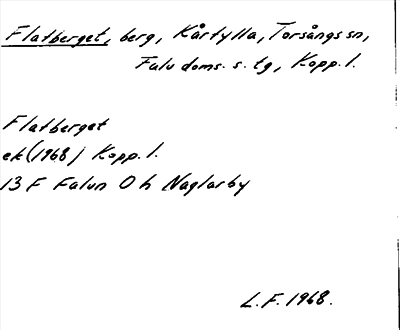 Flatberget, berg, Kårtylla, Torsångs sn,
Falu doms. s. tg, Kopp. l.
Flatberget
ek (1968) Kopp. l.
13 F Falun O h Naglarby
L. F. 1968.